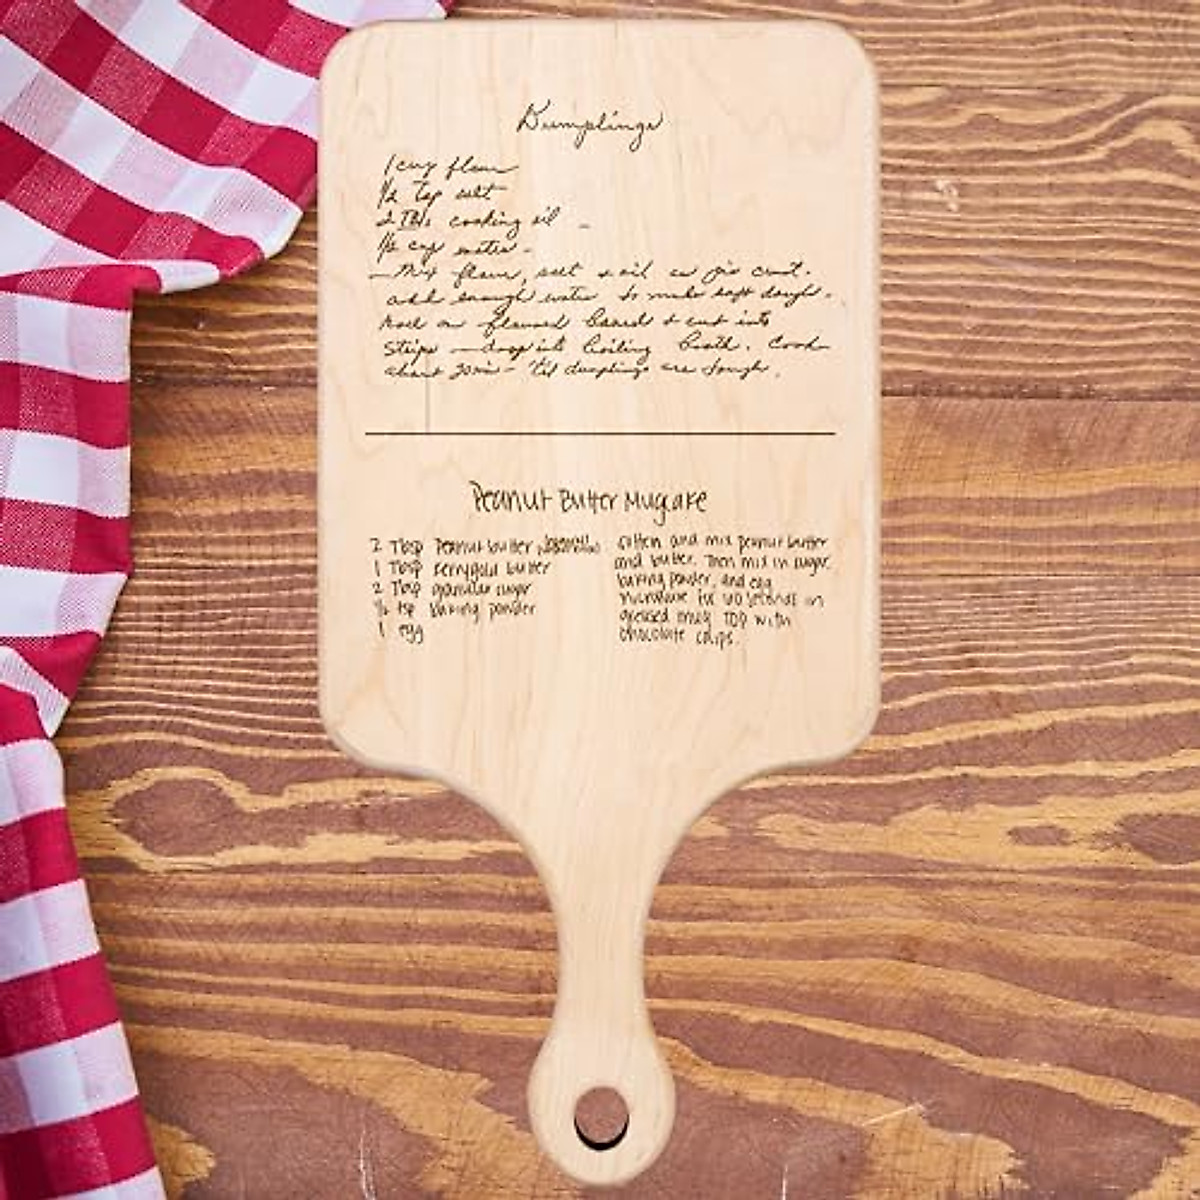 Dumplings
1 cup flour
1/2 Tsp salt
2 Tbls cooking oil -
1/2 cup water -
- Mix flour, salt & oil as pie crust.
add enough water to make soft dough.
Roll on floured board & cut into
Strips - drop into boiling broth. Cook
about 20 min - 'til dumplings are tough.
Peanut Butter Mugcake
2 Tbsp Peanut butter
1 Tbsp kerrygold butter
2 Tbsp granular sugar
1/2 tsp baking powder
1 egg
soften and mix peanut butter
and butter. Then mix in sugar,
baking powder, and egg
microwave for seconds in
greased mug TOP with
chocolate chips.